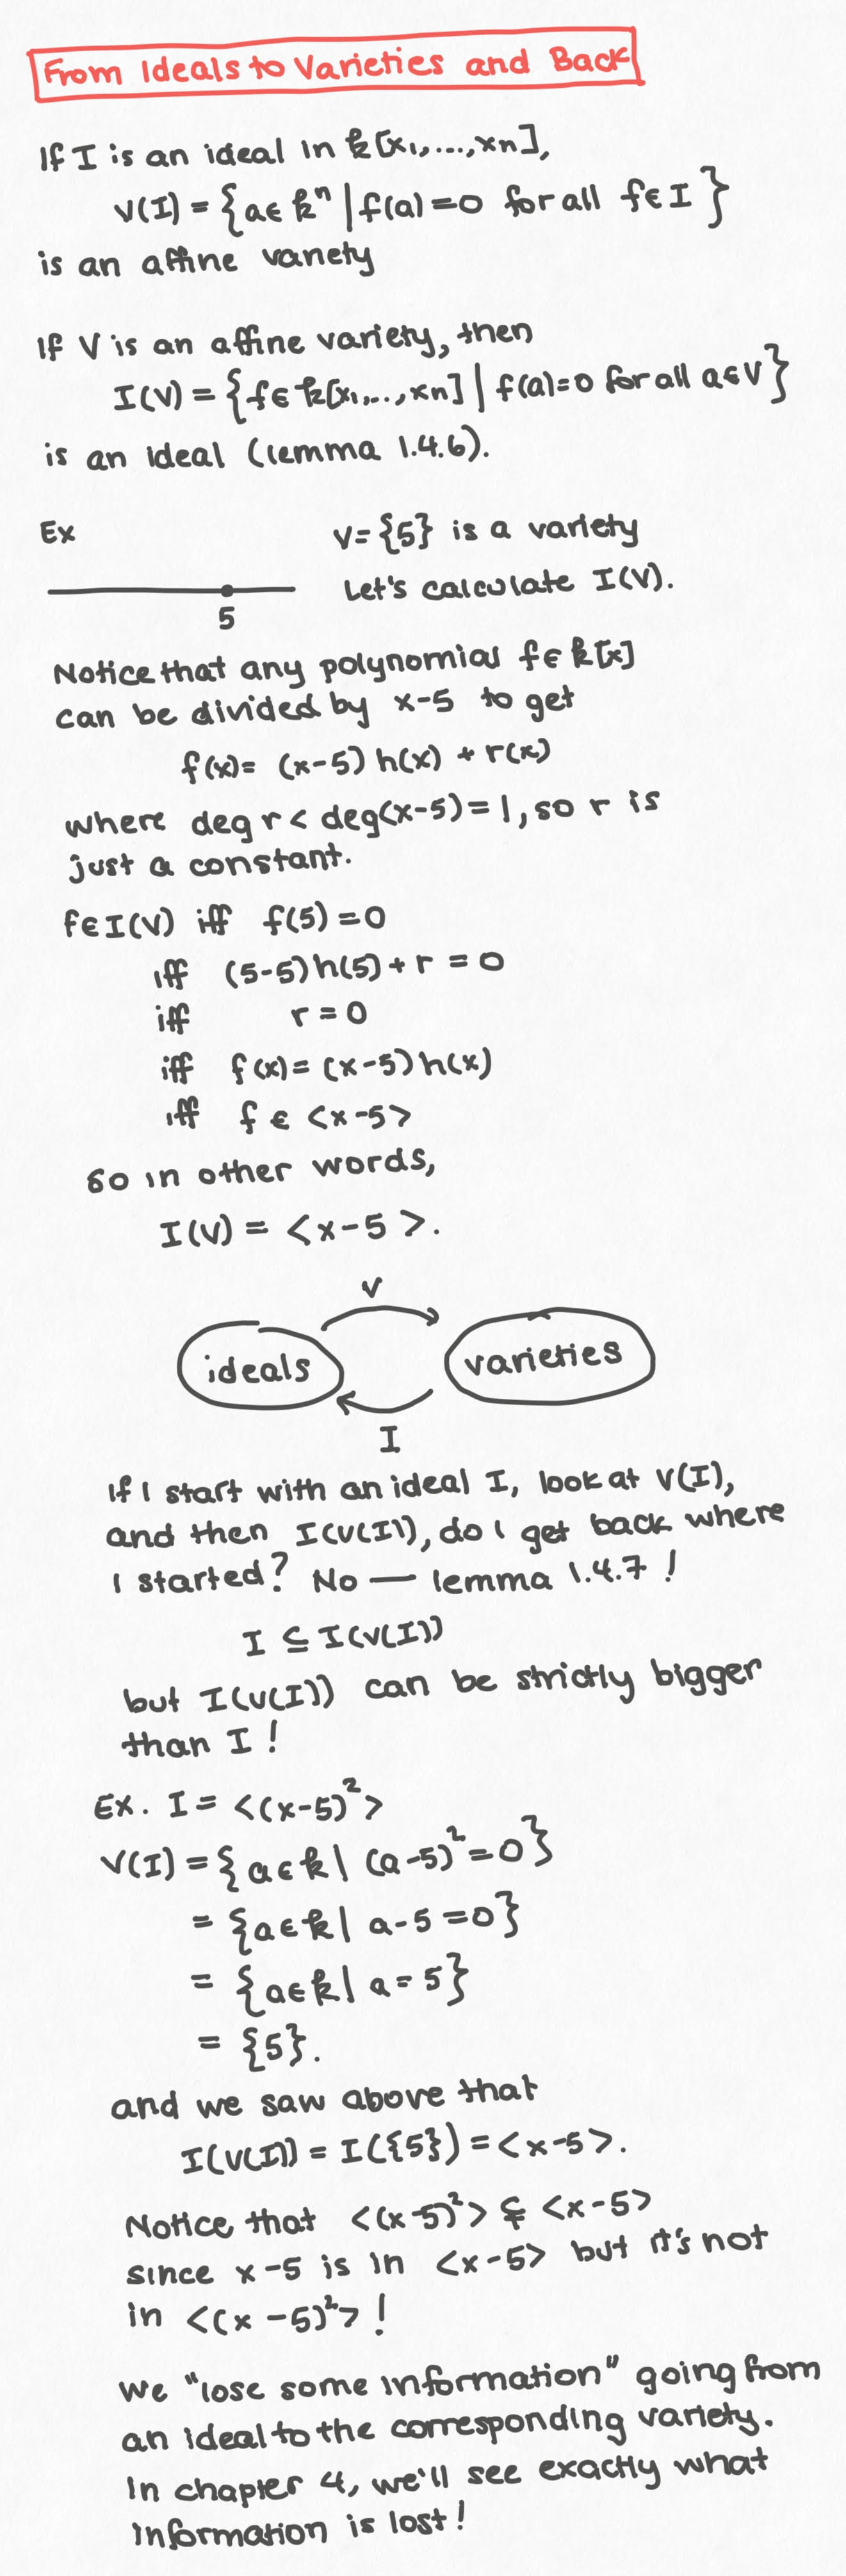 From Ideals to Varieties and Back
If I is an ideal in k[x₁,...,xn],
V(I) = {a∈kⁿ | f(a)=0 for all f∈I}
is an affine variety
If V is an affine variety, then
I(V) = {f∈k[x₁,...,xn] | f(a)=0 for all a∈V}
is an ideal (lemma 1.4.6).
Ex
V={5} is a variety
Let's calculate I(V).
5
Notice that any polynomial f∈k[x]
can be divided by x-5 to get
f(x)= (x-5) h(x) + r(x)
where deg r < deg(x-5)=1, so r is
just a constant.
f∈I(V) iff f(5)=0
iff (5-5)h(5)+r = 0
iff r=0
iff f(x)=(x-5)h(x)
iff f∈<x-5>
So in other words,
I(V) = <x-5>.
V
ideals
varieties
I
If I start with an ideal I, look at V(I),
and then I(V(I)), do I get back where
I started? No — lemma 1.4.7!
I ⊆ I(V(I))
but I(V(I)) can be strictly bigger
than I!
Ex. I = <(x-5)²>
V(I) = {a∈k | (a-5)²=0}
= {a∈k | a-5=0}
= {a∈k | a=5}
= {5}.
and we saw above that
I(V(I)) = I({5}) = <x-5>.
Notice that <(x-5)²> ⊊ <x-5>
since x-5 is in <x-5> but it's not
in <(x-5)²>!
we "lose some information" going from
an ideal to the corresponding variety.
In chapter 4, we'll see exactly what
information is lost!